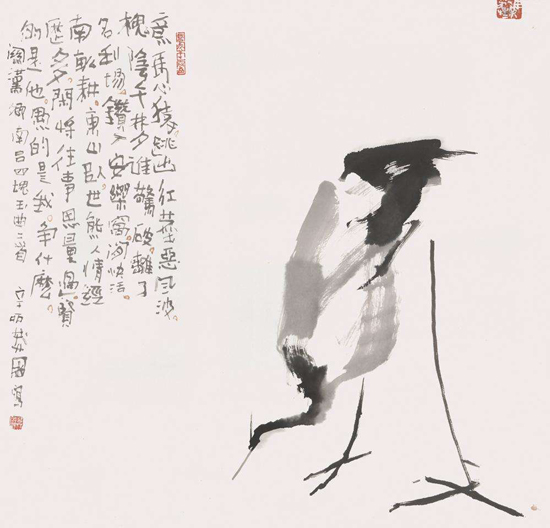 意馬心猿跳出紅塵惡風波。
槐陰午夢誰驚破。離了
名利場。鑽入安樂窩。閑快活。
南畝耕。東山臥。世態人情經
歷多。閑將往事思量過。賢
的是他。愚的是我。爭什麼。
關漢卿南吕四塊玉曲二首 辛卯國寫